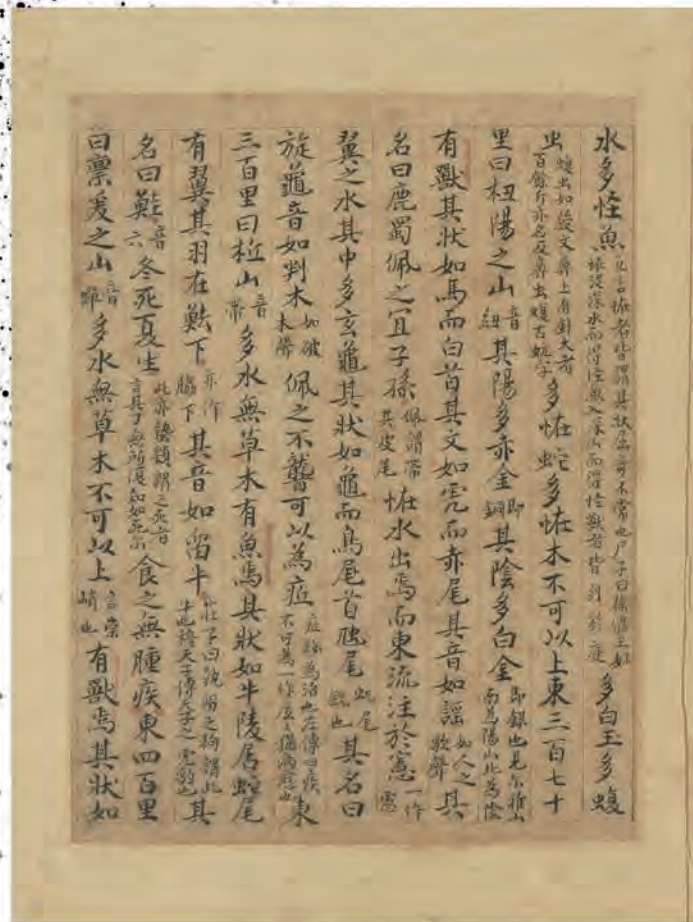 水多怪魚凡言怪者皆謂其狀倔奇不常也尸子曰徐偃王好怪沒深水而得怪魚入深山而得怪獸者皆列於庭多白玉多蝮
虫蝮虫如綬文鼻上有針大者百餘斤亦名反鼻虫蝮古虺字多怪蛇多怪木不可以上東三百七十
里曰杻陽之山音紐其陽多赤金即銅其陰多白金即銀也見尔雅山南為陽山北為陰
有獸其狀如馬而白首其文如虎而赤尾其音如謡如人之歌聲其
名曰鹿蜀佩之宜子孫佩謂帶其皮尾怪水出焉而東流注於憲一作憲
翼之水其中多玄龜其狀如龜而鳥尾首虺尾虺尾銳也其名曰
旋龜音如判木如破木聲佩之不聾可以為疷疷猶為治也左傳曰疾不可為一作底猶病愈也東
三百里曰柢山音帶多水無草木有魚焉其狀如牛陵居蛇尾
有翼其羽在魼下亦作脇下其音如留牛莊子曰執留之狗謂此牛也穆天子傳天子之虎豹也其
名曰鯥音六冬死夏生此亦蟄類謂之死者言其了無所復知如死尔食之無腫疾東四百里
曰亶爰之山音多水無草木不可以上言崇峭也有獸焉其狀如